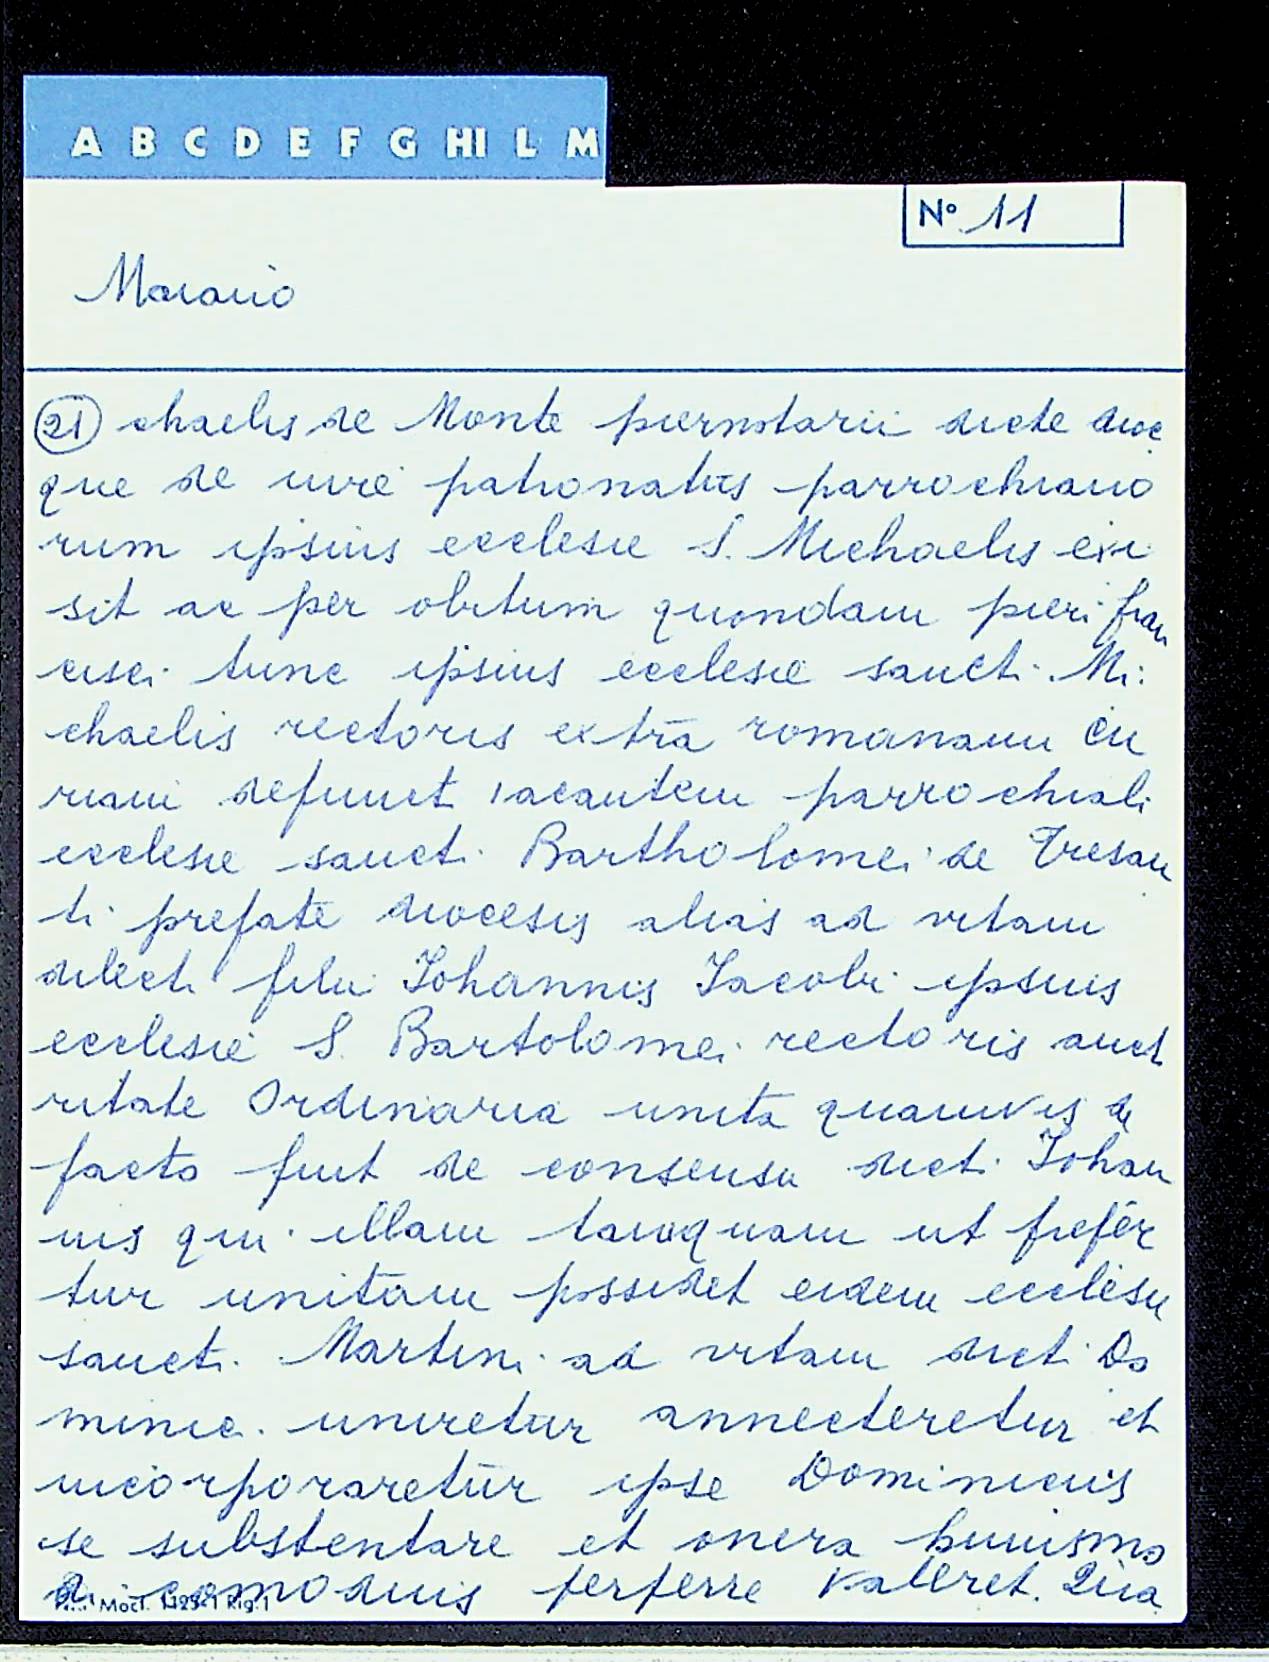 A B C D E F G HI L M
N° 11
Marano
(21) chaelis de Monte piernotarii dicte dioc
que de iure patronatus parrochiano
rum ipsius ecclesie S. Michaelis exi
sit ac per obitum quondam pieri fran
cisci tunc ipsius ecclesie sancti Mi:
chaelis rectoris extra romanam cu
riam defunct vacantem parrochiali
ecclesie sancti Bartholomei de Tresan
ti prefate diocesis alias ad vitam
dilecti filii Iohannis Iacobi ipsius
ecclesie S. Bartolomei rectoris auct
ritate Ordinaria unita quamvis de
facto fuit de consensu dicti Iohan
nis qui illam tamquam ut prefer
tur unitam possidet eidem ecclesie
sancti Martini ad vitam dicti Do
minici uniretur annecteretur et
incorporaretur ipse Dominicus
se substentare et onera huiusmo
di comodius perferre valeret. Qua
Mod.